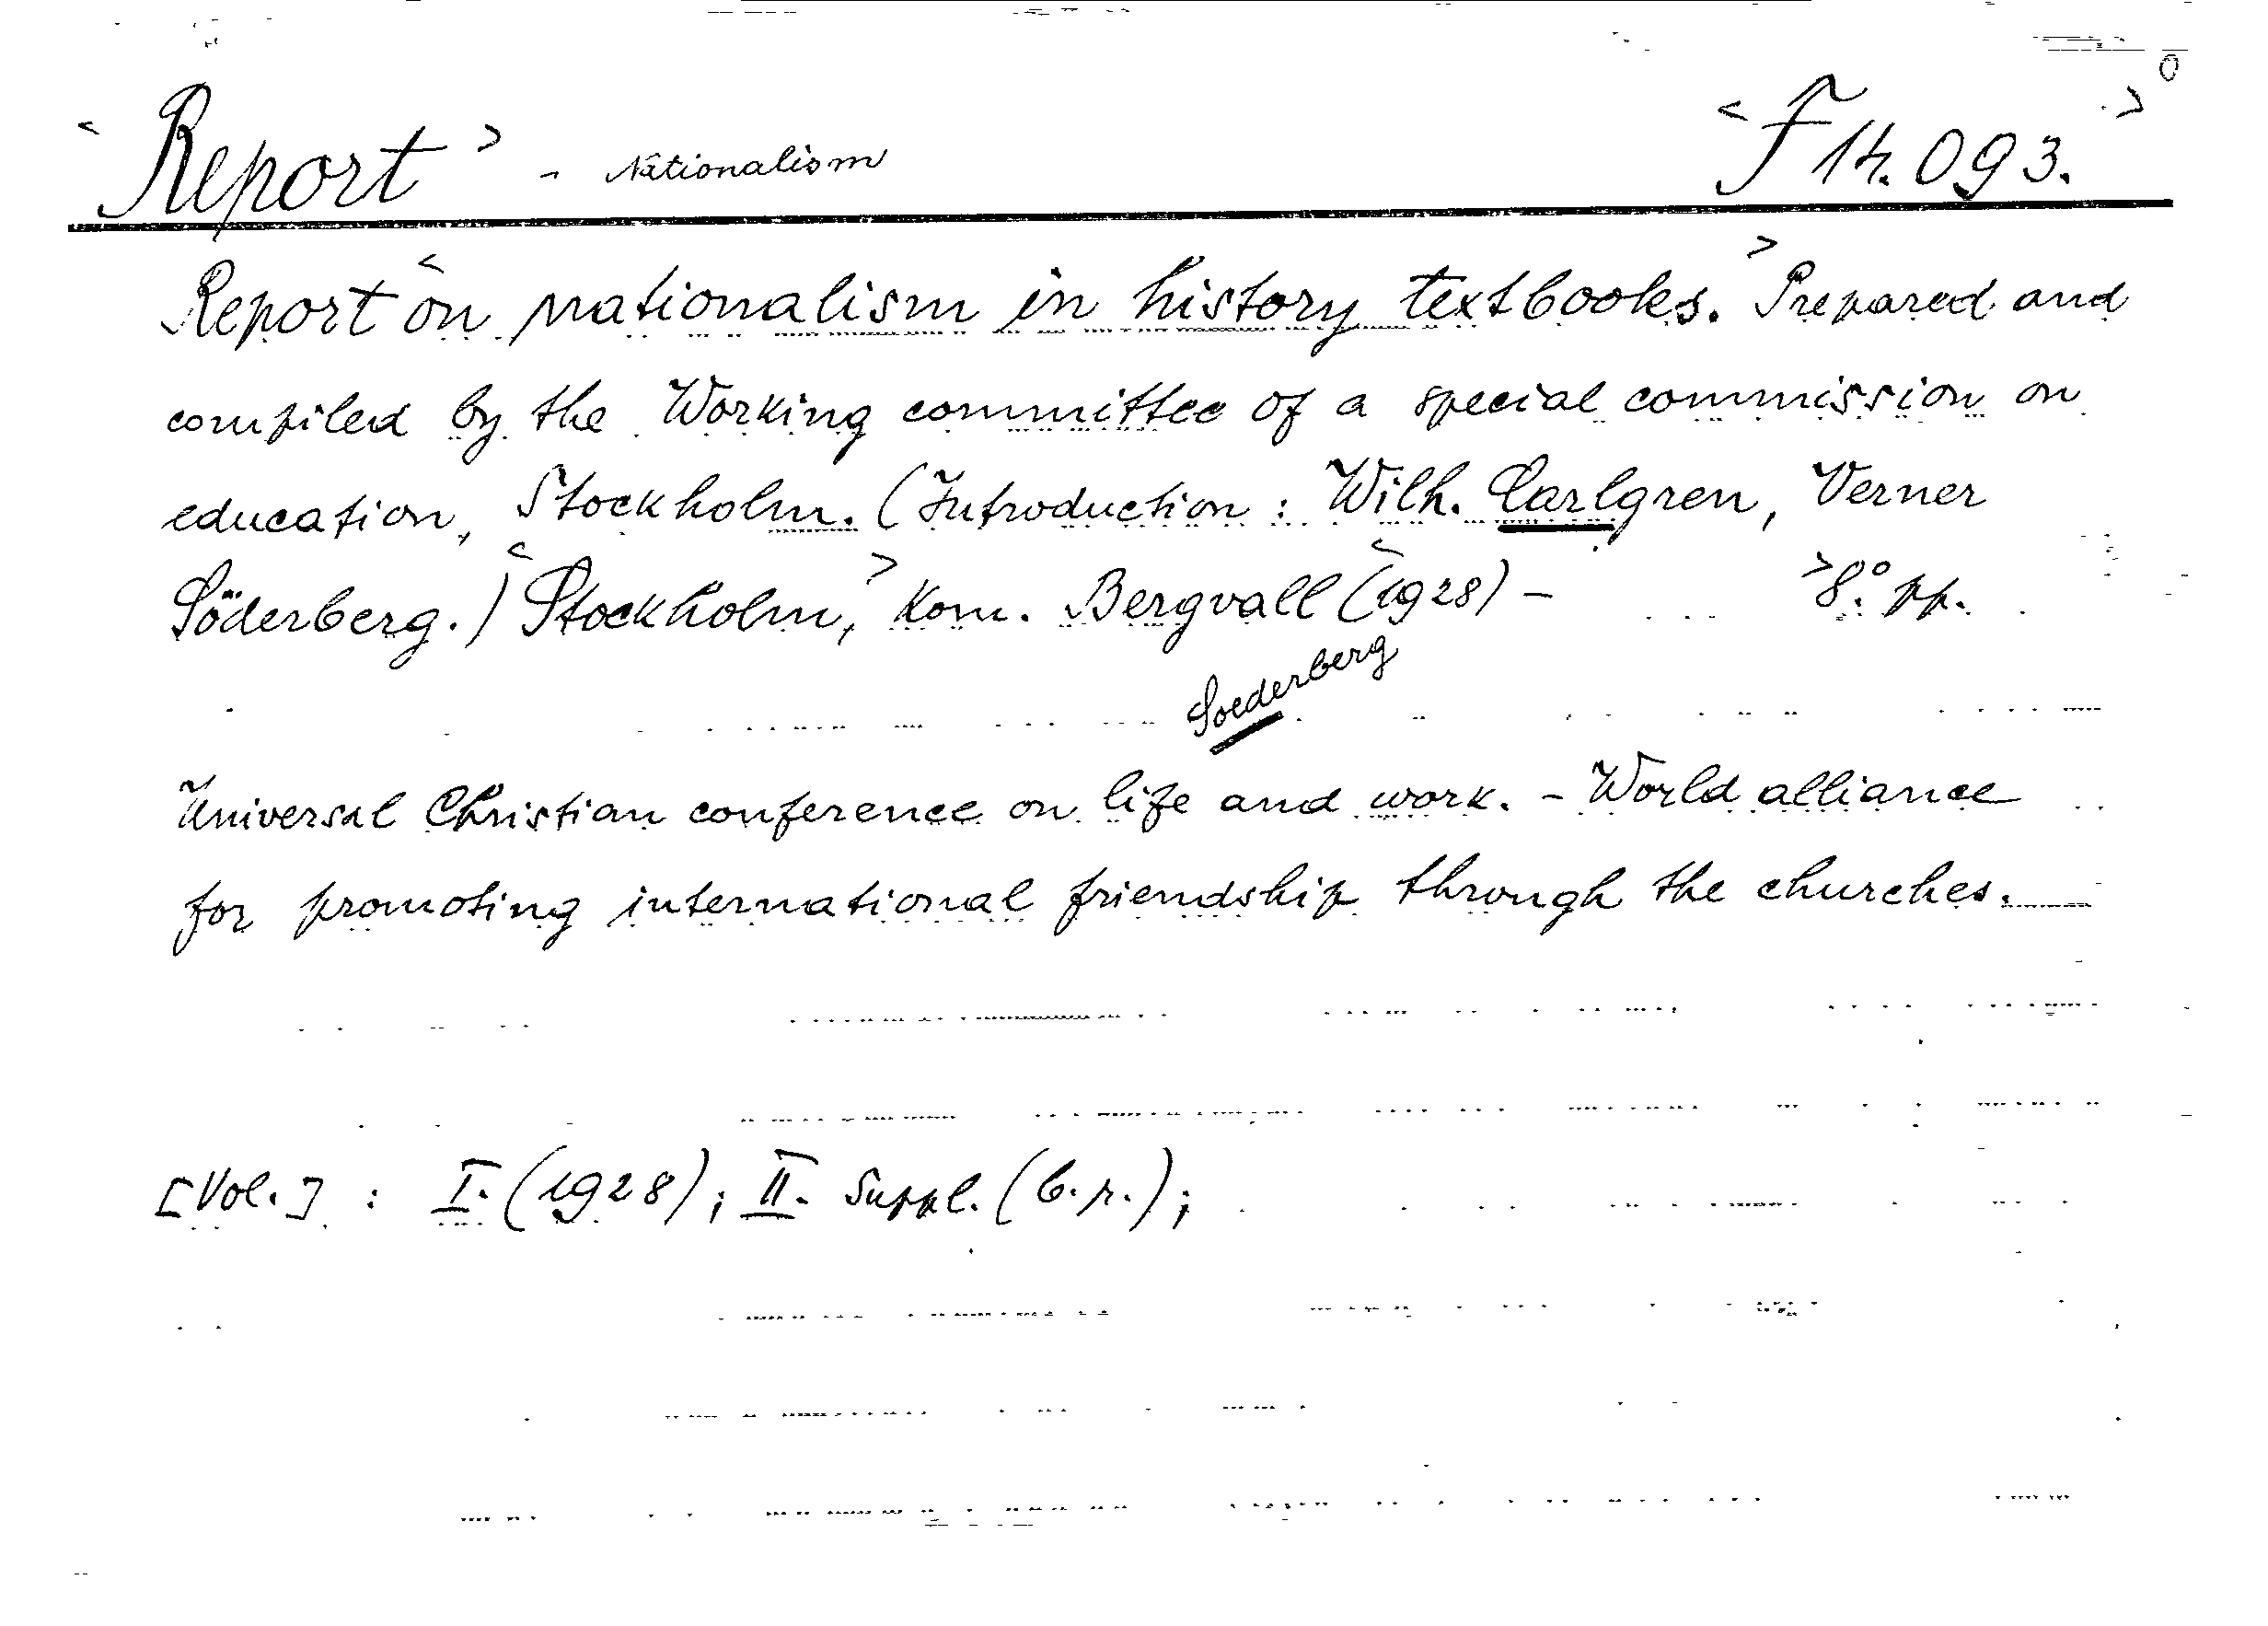 <Report> - Nationalism <F 14.093.>
Report <on nationalism in history textbooks.> Prepared and
compiled by the Working committee of a special commission on
education, Stockholm. (Introduction: Wilh. Carlgren, Verner
Söderberg.) <Stockholm,> Kom. Bergvall <(1928) - >8.° pp.
Soederberg
Universal Christian conference on life and work. - World alliance
for promoting international friendship through the churches.
[Vol.] : I. (1928); II. Suppl. (b.r.);